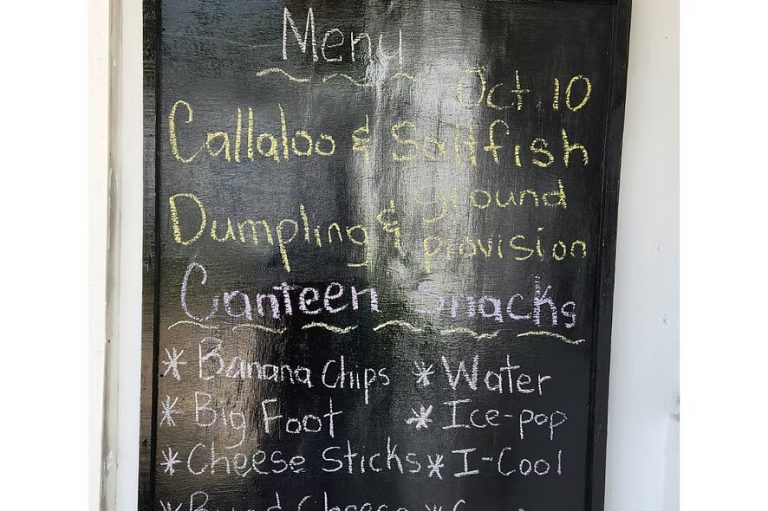 Menu
Oct 10
Callaloo & Saltfish
Dumpling & ground
provision
Canteen Snacks
* Banana Chips * Water
* Big Foot * Ice-pop
* Cheese Sticks * I-Cool